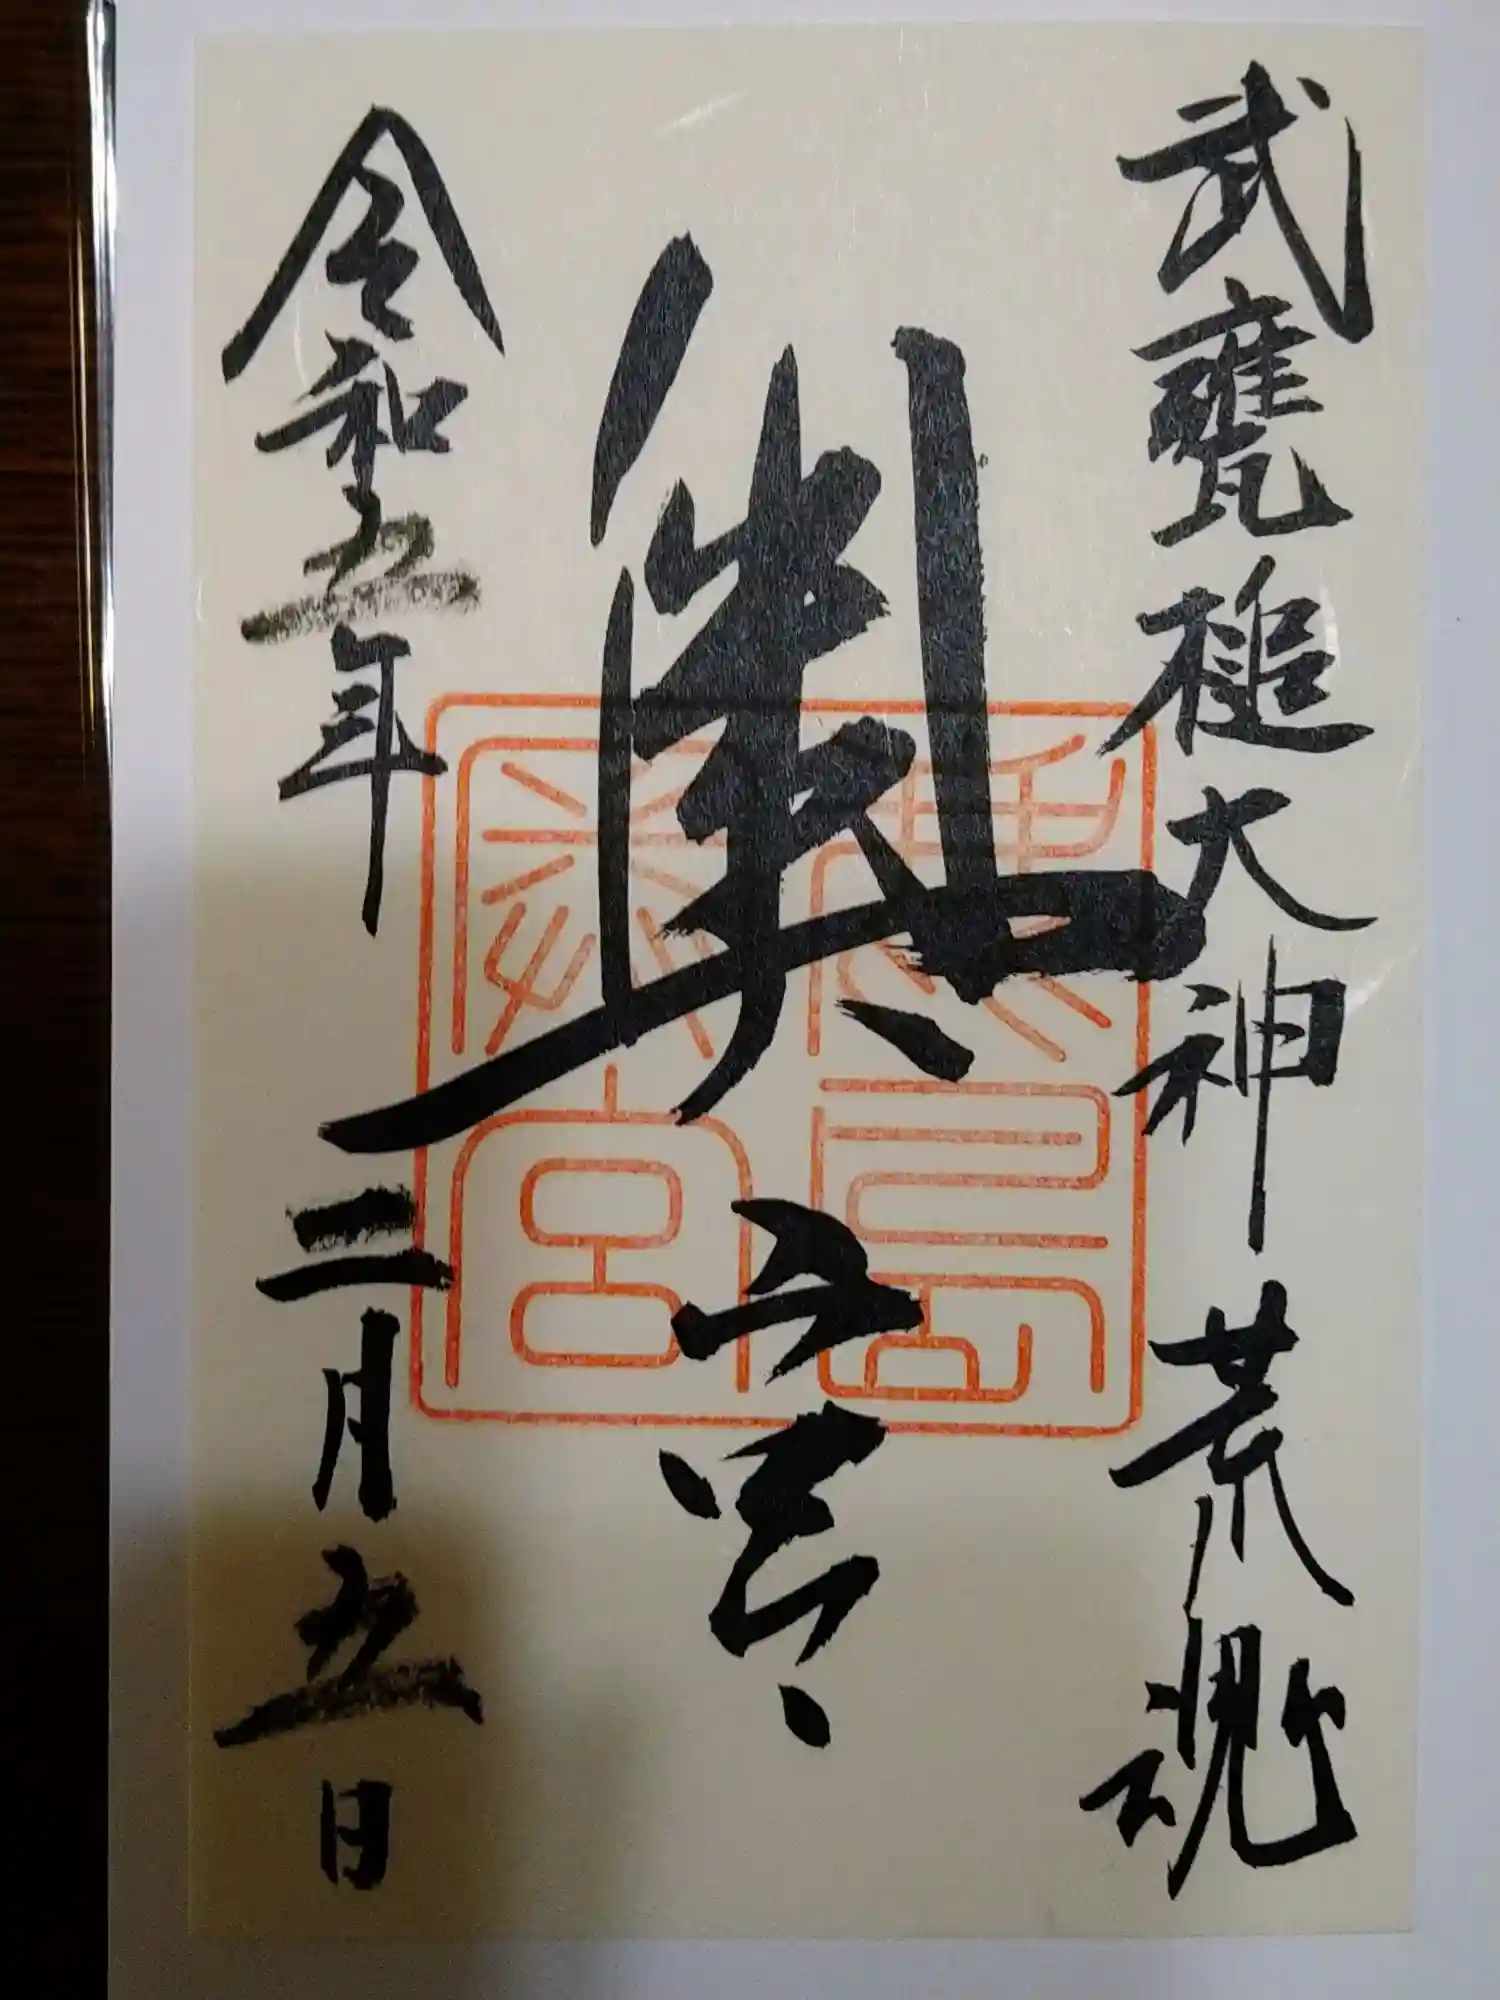 武甕槌大神荒魂
奥宮
鹿島
神宮
令和五年二月五日